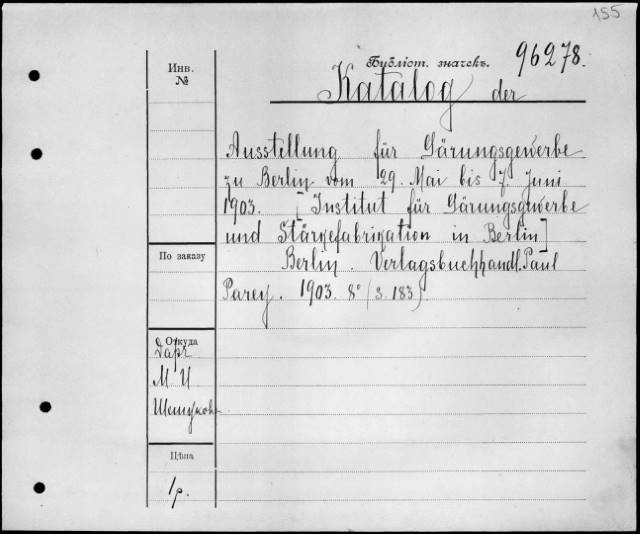 155
Бубліот. значекъ. 96278.
Инв.
№
Katalog der
Ausstellung für Gärungsgewerbe
zu Berlin vom 29. Mai bis 7. Juni
1903. [Institut für Gärungsgewerbe
und Stärkefabrikation in Berlin]
Berlin. Verlagsbuchhandl. Paul
Parey. 1903. 8° (S. 183).
По заказу
Откуда
Даръ
М И
Цѣна
1р.